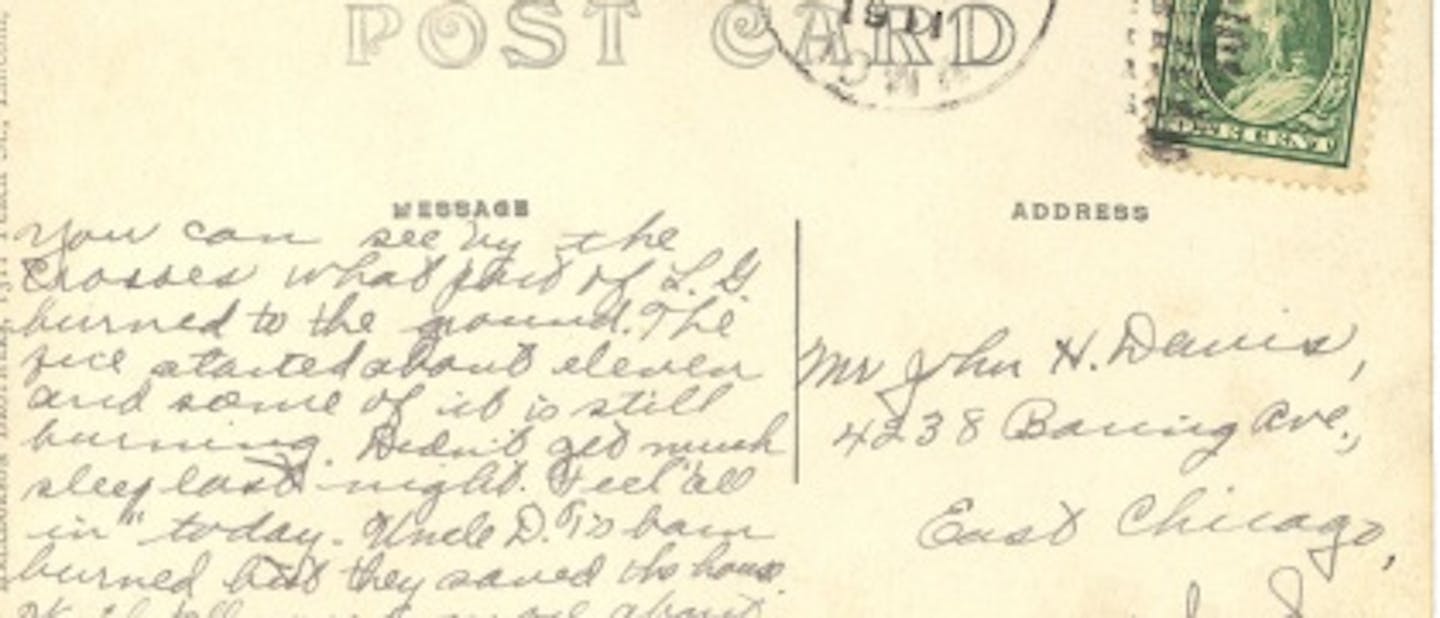 POST CARD
1911
MESSAGE
ADDRESS
You can see by the
crosses what part of L. G.
burned to the ground. The
fire started about eleven
and some of it is still
burning. Didn't get much
sleep last night. Feel "all
in" today. Uncle D.'s barn
burned but they saved the house.
tell more about
Mr John H. Davis,
4238 Baring Ave.,
East Chicago,